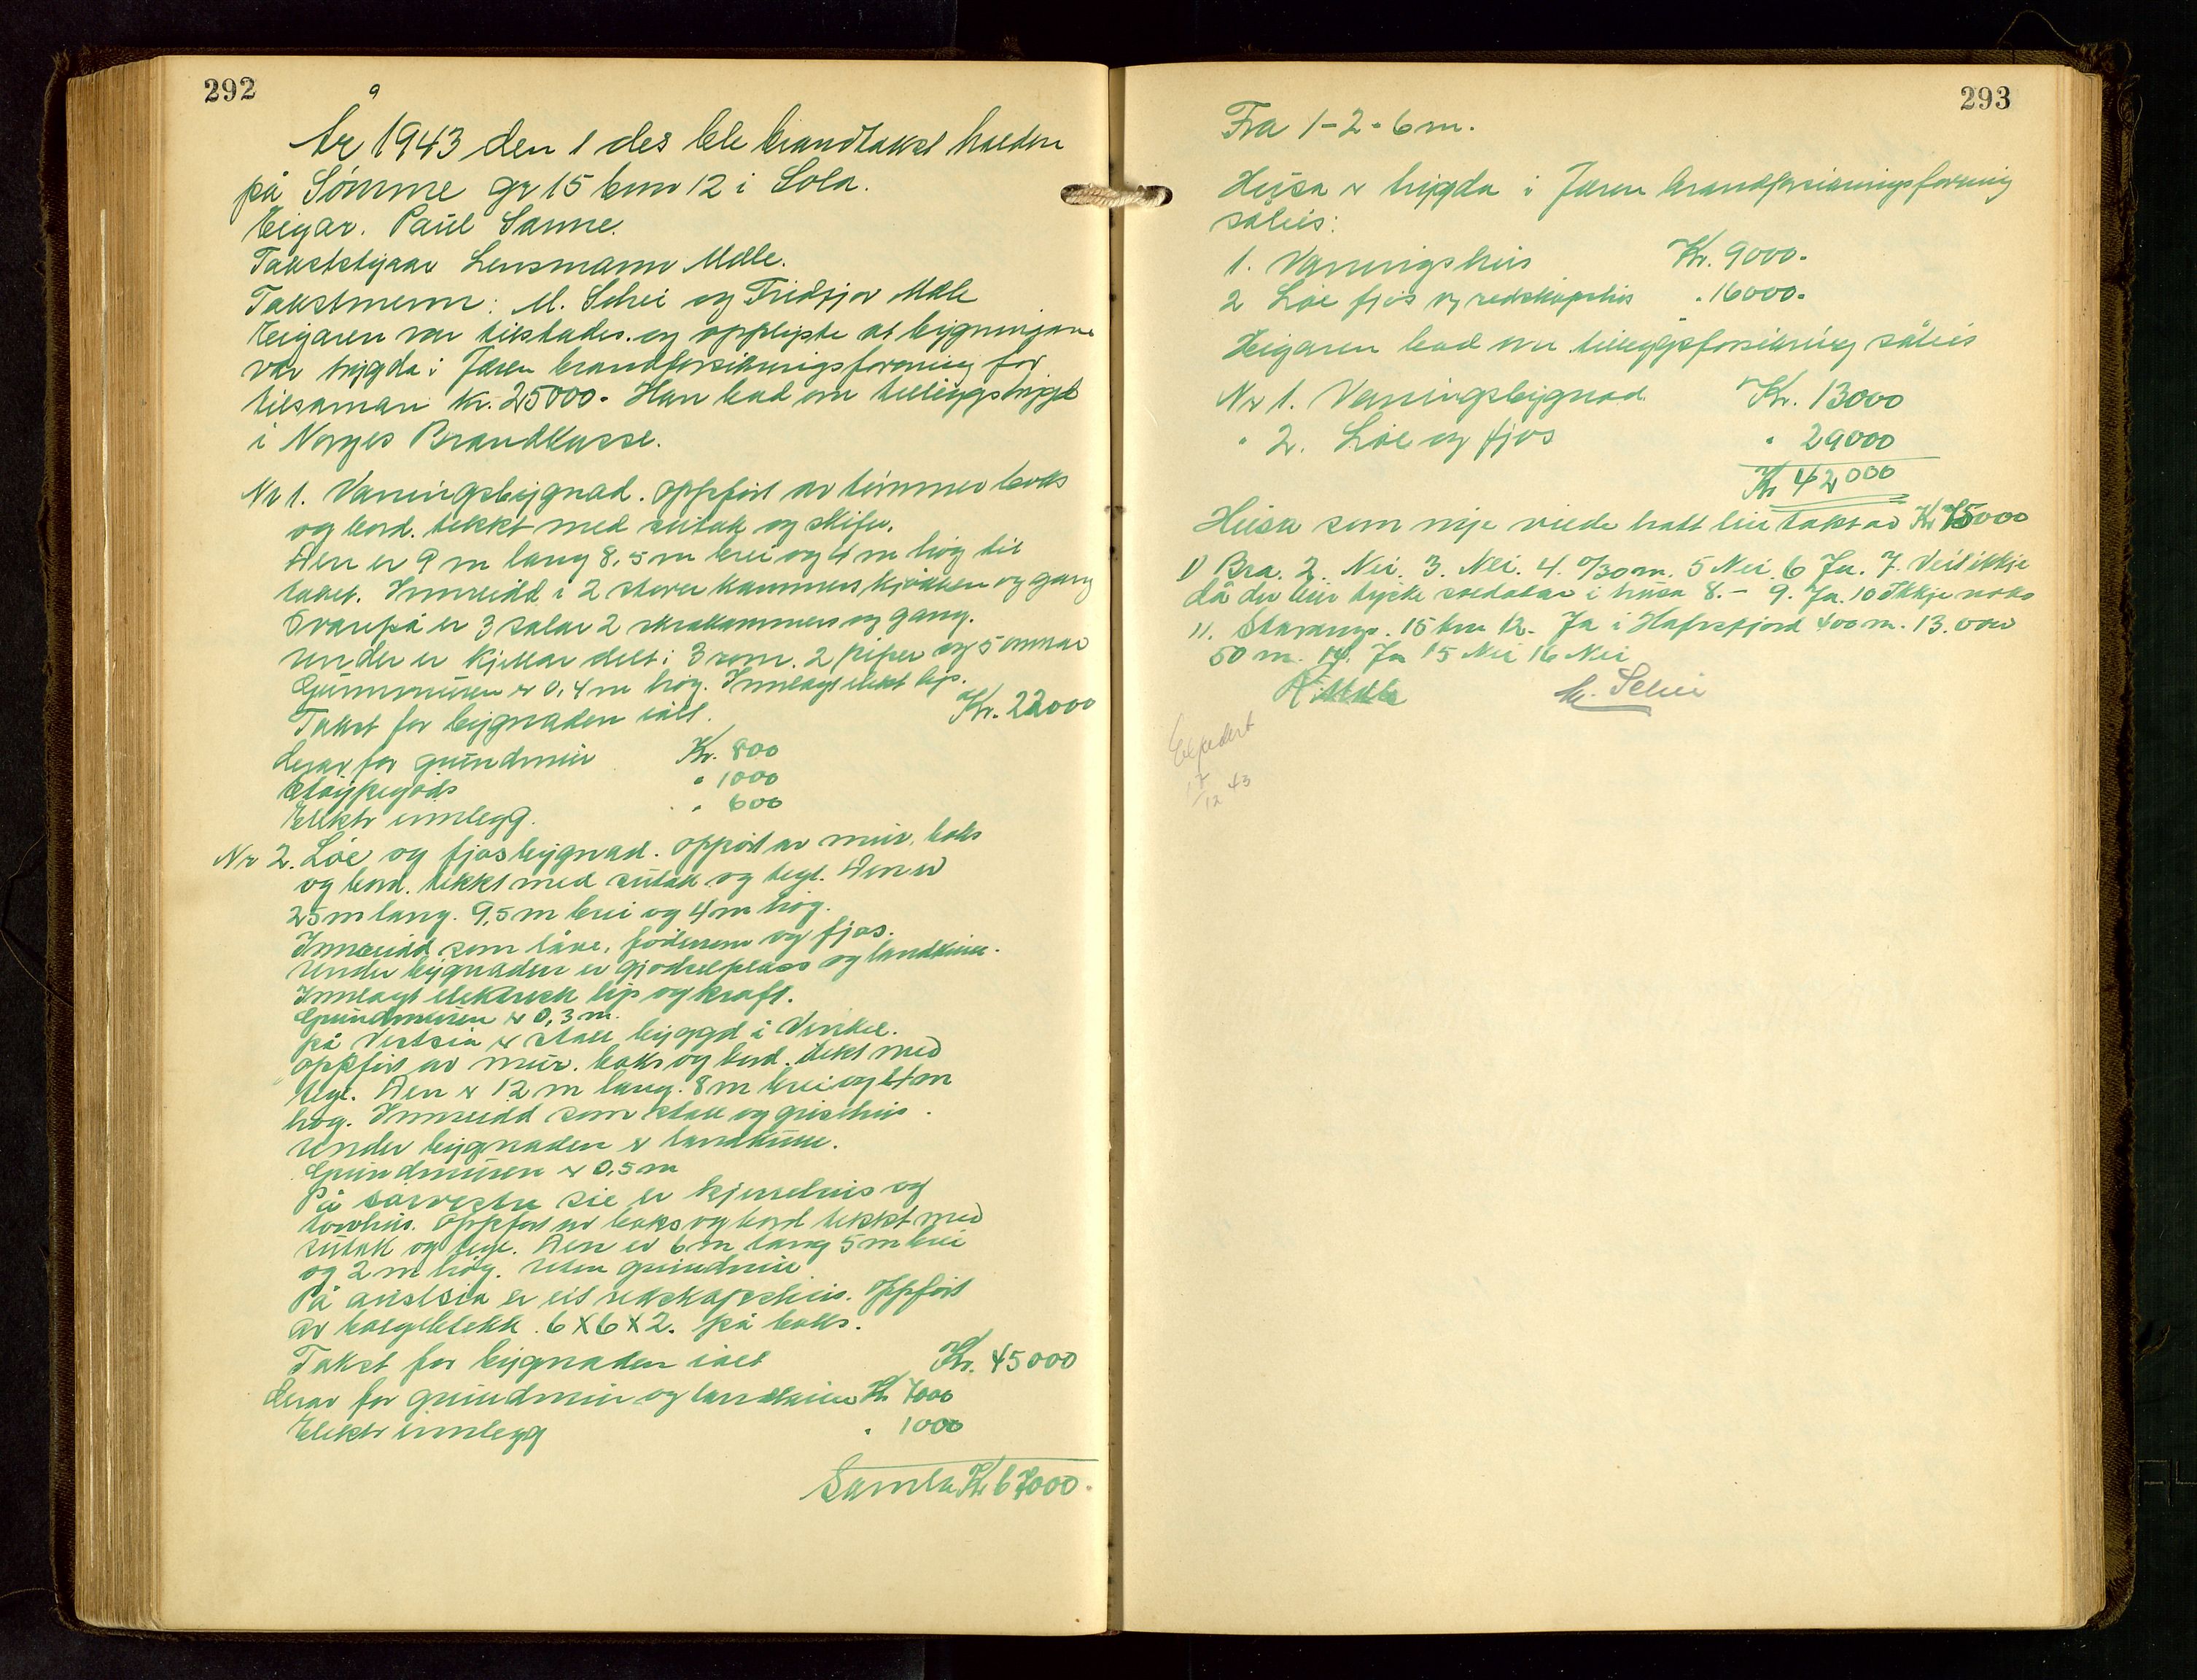 292
År 1943 den 1 des ble brandtakst halden
på Sömme gr 15 bnr 12 i Sola.
Eigar. Paul Sanne.
Takststyrar Lensmann Melle.
Takstmenn: M. Schei og Fridtjov Mæle
Eigaren var tilstades og opplyste at bygningane
var trygda i Jæren brandforsikringsforening for
tilsaman kr. 25000.- Han bad om tilleggstrygd
i Norges Brandkasse.
Nr 1. Vaningsbygnad. oppført av tømmer boks
og bord. tekkt med sutak og skifer.
Den er 9 m lang 8,5 m brei og 4 m høg til
taket. Innreidd i 2 stover kammers kjøkken og gang
Ovanpå er 3 salar 2 skråkammers og gang.
Under er kjellar delt i 3 rom. 2 piper og 5 omnar
Grunnmuren er 0,4 m høg. Innlagt elekt lys.
Takst for bygnaden ialt. Kr. 22000
Derav for grundmur Kr. 800
Støypegods " 1000
Elektr innlegg. " 600
Nr 2. Løe og fjosbygnad. oppført av mur, boks
og bord. tekkt med sutak og tegl. Den er
25 m lang. 9,5 m brei og 4 m høg.
Innreidd som låve, foderrom og fjos.
Under bygnaden er gjødselplass og landkum.
Innlagt elektrisk lys og kraft.
Grundmuren er 0,3 m.
på Vestsia er stall byggd i Vinkel.
oppført av mur. boks og bord. tekt med
tegl. Den er 12 m lang. 8 m brei og 4 m
høg. Innreidd som stall og grisehus.
Under bygnaden er landkum.
Grundmuren er 0,5 m
På sørvestre sie er kjerrehus og
torvhus. Oppført av boks og bord tekkt med
sutak og tegl. Den er 6 m lang 5 m brei
og 2 m høg. Uten grundmur
På austsia er eit redskapshus. Oppført
av bølgeblekk. 6 X 6 X 2. på boks.
Takst for bygnaden ialt Kr. 45000
Derav for grundmur og landkum Kr 7000
Elektr innlegg " 1000
Samla Kr 67000.-
293
Fra 1-2 - 6 m.
Husa er trygda i Jæren brandforsikringsforening
såleis:
1. Vaningshus Kr. 9000.-
2 Løe fjos og redskapshus " 16000.-
Eigaren bad om tilleggsforsikring såleis
Nr 1. Vaningsbygnad Kr. 13000
" 2. Løe og fjos " 29000
Kr 42000
Husa som nye vilde hatt ein takst av Kr 75000
1) Bra. 2. Nei. 3. Nei. 4. 0/30 m. 5 Nei. 6 Ja. 7. Veit ikkje
då der bur tyske soldatar i husa 8. - 9. Ja. 10 Ikkje noko
11. Stavanger. 15 km 12. Ja i Hafrsfjord 400 m. 13. over
50 m. 14. Ja 15 Nei 16 Nei
M. Schei
Expedert
17/12 43